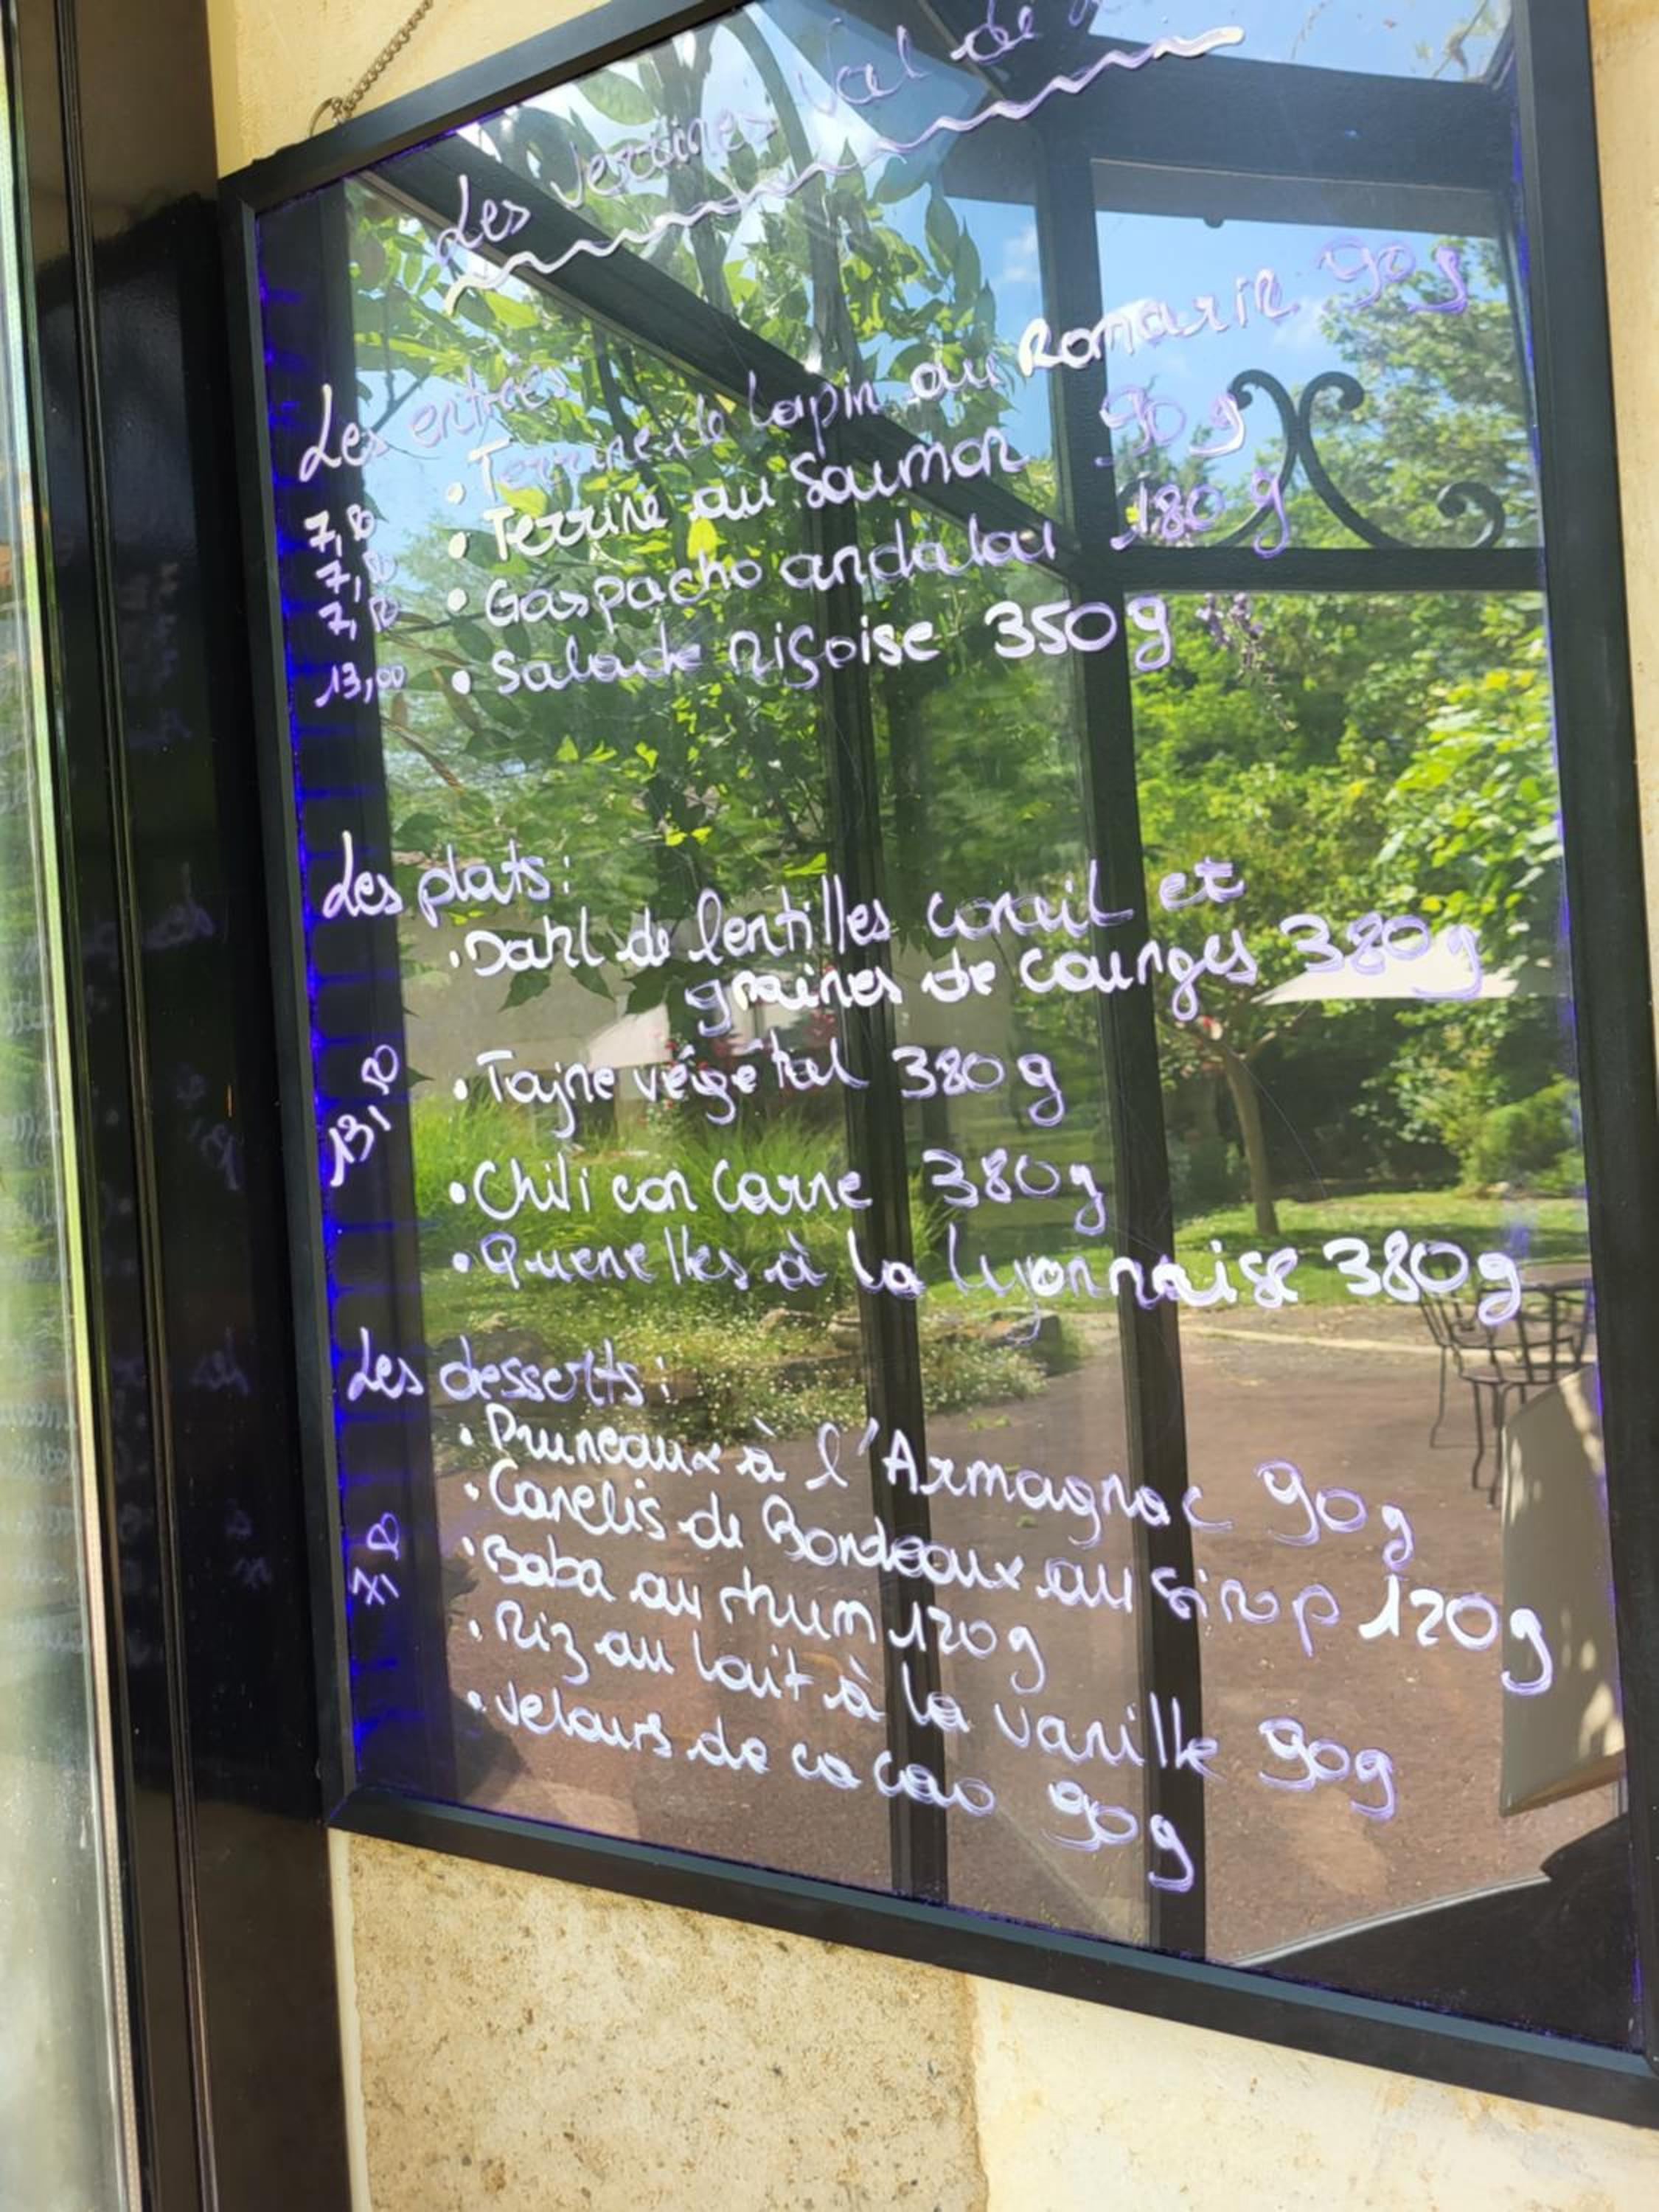 Les Verrines Val de
Les entrées
7,50 • Terrine de lapin au Romarin 90g
7,50 • Terrine au Saumon 90g
7,50 • Gaspacho andalou 180g
13,00 • Salade niçoise 350g
Les plats:
• Dahl de lentilles corail et
graines de courges 380g
13,50 • Tajine végétal 380g
• Chili con Carne 380g
• Quenelles à la lyonnaise 380g
Les desserts:
• Pruneaux à l'Armagnac 90g
• Canelés de Bordeaux au sirop 120g
7,50 • Baba au rhum 120g
• Riz au lait à la vanille 90g
• Velours de cacao 90g